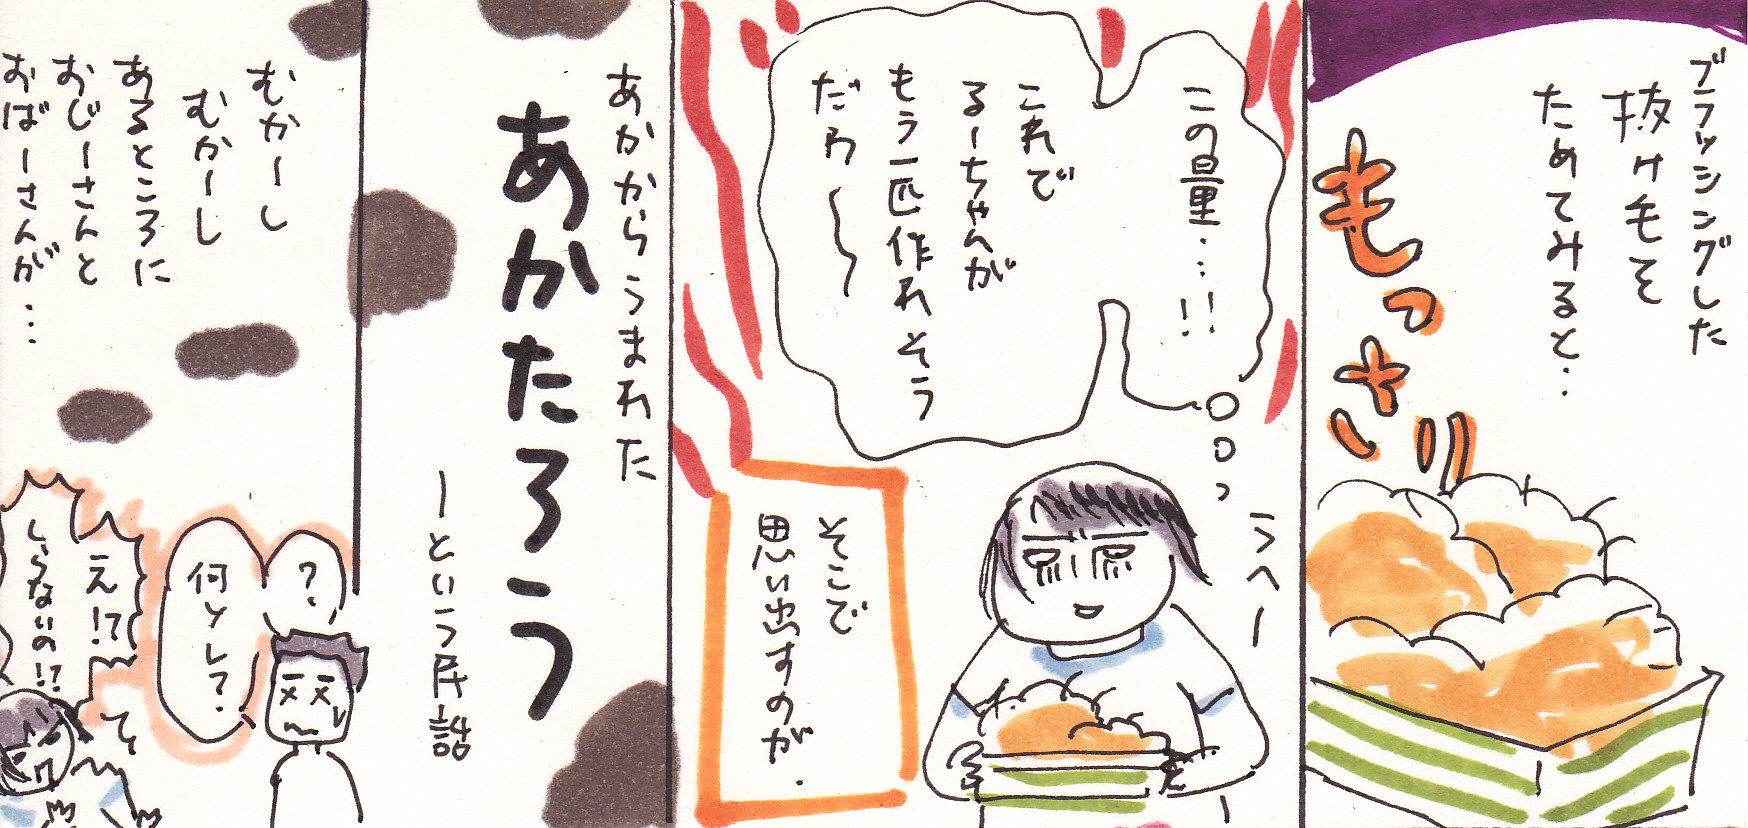 ブラッシングした
抜け毛を
ためてみると・・
もっさり
この量・・・!!
これで
るーちゃんが
もう一匹作れそう
だわ〜〜
うへー
そこで
思い出すのが・
あかからうまれた
あかたろう
ーという民話
むかーし
むかーし
あるところに
おじーさんと
おばーさんが・・・
?
何ソレ?
え!?
しらないの!?